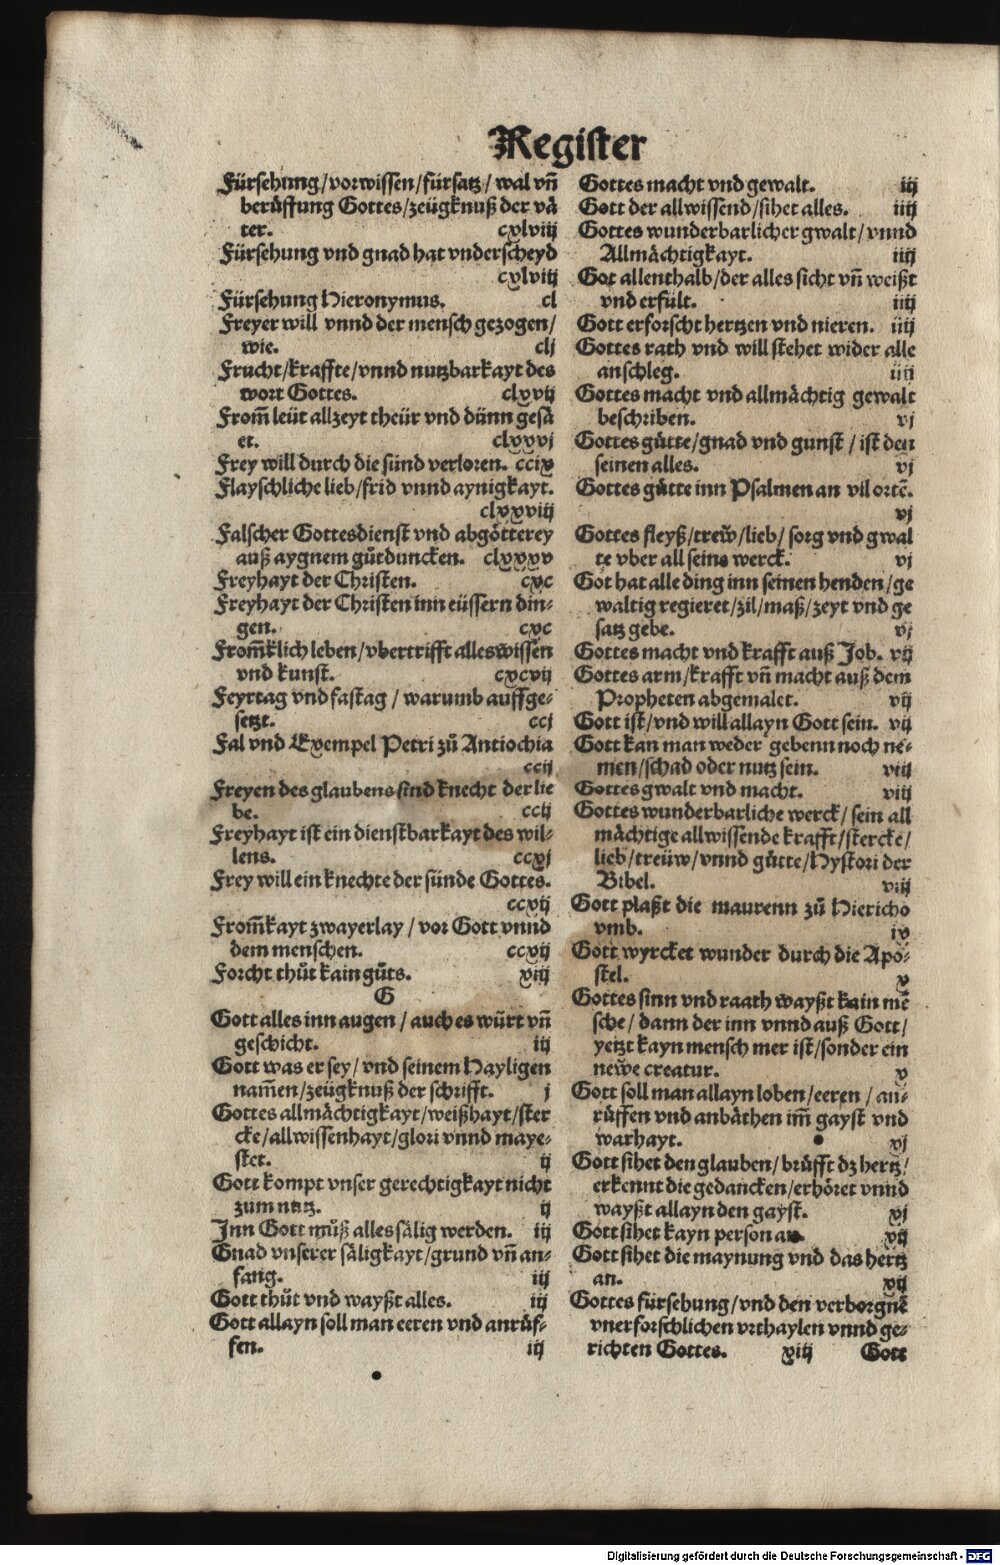 Register
Fürsehung/vorwissen/fürsatz/ wal vn̄
berůffung Gottes/zeügknuß der vä
ter. cxlviij
Fürsehung vnd gnad hat vnderscheyd
cxlviij
Fürsehung Hieronymus. cl
Freyer will vnnd der mensch gezogen/
wie. clj
Frucht/kraffte/vnnd nutzbarkayt des
wort Gottes. clxvij
From̄ leüt allzeyt theür vnd dünn gesä
et. clxxvj
Frey will durch die sünd verloren. ccix
Flayschliche lieb/frid vnnd aynigkayt.
clxxviij
Falscher Gottesdienst vnd abgötterey
auß aygnem gůtduncken. clxxxv
Freyhayt der Christen. cxc
Freyhayt der Christen inn eüssern din-
gen. cxc
From̄klich leben/vbertrifft alles wissen
vnd kunst. cxcvij
Feyrtag vnd fastag / warumb auffge-
setzt. ccj
Fal vnd Exempel Petri zů Antiochia
ccij
Freyen des glaubens sind knecht der lie
be. ccij
Freyhayt ist ein dienstbarkayt des wil-
lens. ccxj
Frey will ein knechte der sünde Gottes.
ccxij
From̄kayt zwayerlay / vor Gott vnnd
dem menschen. ccxij
Forcht thůt kain gůts. xiij
G
Gott alles inn augen / auch es würt vn̄
geschicht. iij
Gott was er sey/vnd seinem Hayligen
nam̄en/zeügknuß der schrifft. j
Gottes allmächtigkayt/weißhayt/ster
cke/allwissenhayt/glori vnnd maye-
stet. ij
Gott kompt vnser gerechtigkayt nicht
zum nutz. ij
Inn Gott můß alles sälig werden. iij
Gnad vnserer säligkayt/grund vn̄ an-
fang. iij
Gott thůt vnd wayßt alles. iij
Gott allayn soll man eeren vnd anrůf-
fen. iij
Gottes macht vnd gewalt. iij
Gott der allwissend/sihet alles. iiij
Gottes wunderbarlicher gwalt/vnnd
Allmächtigkayt. iiij
Got allenthalb/der alles sicht vn̄ weißt
vnd erfült. iiij
Gott erforscht hertzen vnd nieren. iiij
Gottes rath vnd will stehet wider alle
anschleg. iiij
Gottes macht vnd allmächtig gewalt
beschriben. vj
Gottes gůtte/gnad vnd gunst / ist den
seinen alles. vj
Gottes gůtte inn Psalmen an vil ortē.
vj
Gottes fleyß/trew̆/lieb/ sorg vnd gwal
te vber all seine werck. vj
Got hat alle ding inn seinen henden/ge
waltig regieret/zil/maß/zeyt vnd ge
satz gebe. vj
Gottes macht vnd krafft auß Job. vij
Gottes arm/krafft vn̄ macht auß dem
Propheten abgemalet. vij
Gott ist/vnd will allayn Gott sein. vij
Gott kan man weder gebenn noch ne-
men/schad oder nutz sein. viij
Gottes gwalt vnd macht. viij
Gottes wunderbarliche werck/ sein all
mächtige allwissende krafft/stercke/
lieb/treüw/vnnd gůtte/Hystori der
Bibel. viij
Gott plaßt die maurenn zů Hiericho
vmb. ix
Gott wyrcket wunder durch die Apo-
stel. x
Gottes sinn vnd raath wayßt kain mē
sche/ dann der inn vnnd auß Gott/
yetzt kayn mensch mer ist/sonder ein
new̆e creatur. x
Gott soll man allayn loben/eeren / an-
růffen vnd anbäthen im̄ gayst vnd
warhayt. xj
Gott sihet den glauben/ brüfft dz hertz/
erkennt die gedancken/erhöret vnnd
wayßt allayn den gayst. xj
Gott sihet kayn person an. xij
Gott sihet die maynung vnd das hertz
an. xij
Gottes fürsehung/vnd den verborgnē
vnerforschlichen vrthaylen vnnd ge-
richten Gottes. xiij Gott
Digitalisierung gefördert durch die Deutsche Forschungsgemeinschaft - DFG